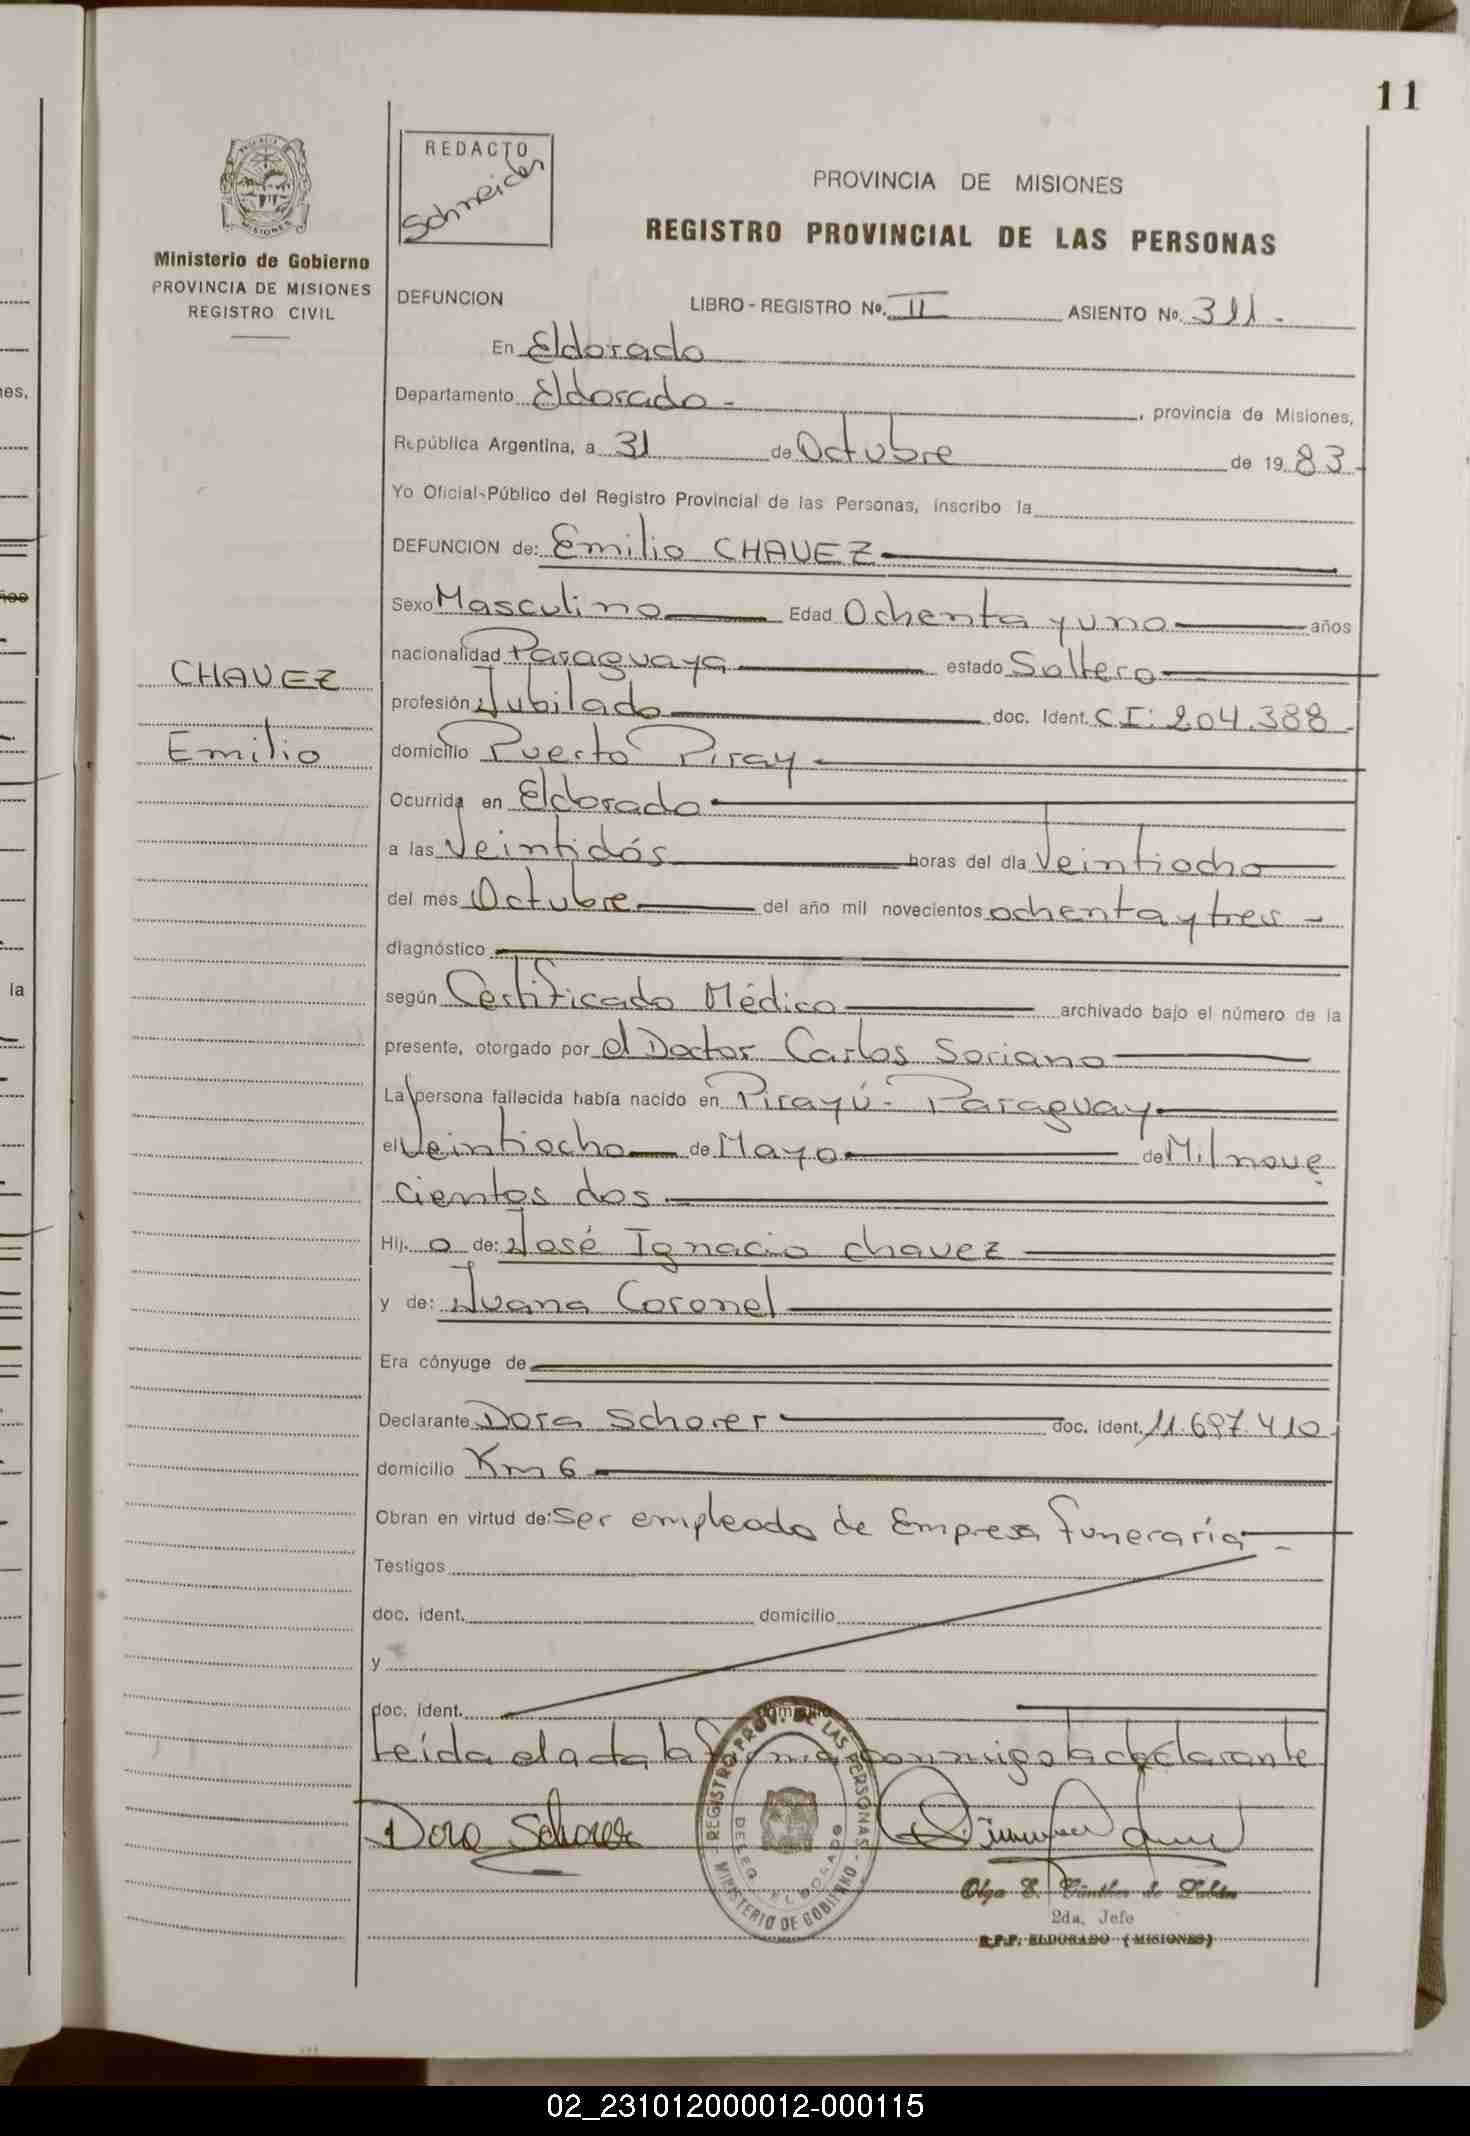 11
REDACTO
Schneider
PROVINCIA DE MISIONES
REGISTRO PROVINCIAL DE LAS PERSONAS
Ministerio de Gobierno
PROVINCIA DE MISIONES
REGISTRO CIVIL
DEFUNCION LIBRO-REGISTRO No. II ASIENTO No. 311.-
En Eldorado
Departamento Eldorado-, provincia de Misiones,
República Argentina, a 31 de Octubre de 19 83.-
Yo Oficial-Público del Registro Provincial de las Personas, inscribo la
DEFUNCION de: Emilio CHAVEZ
Sexo Masculino Edad Ochenta y uno años
nacionalidad Paraguaya estado Soltero
CHAVEZ
profesión Jubilado doc. Ident. CI: 204.388.-
Emilio
domicilio Puerto Piray
Ocurrida en Eldorado
a las Veintidós horas del día Veintiocho
del mes Octubre del año mil novecientos ochenta y tres -
diagnóstico
según Certificado Médico archivado bajo el número de la
presente, otorgado por el Doctor Carlos Soriano
La persona fallecida había nacido en Pirayú - Paraguay
el Veintiocho de Mayo de Mil nove
cientos dos
Hij. o de: José Ignacio chavez
y de: Juana Coronel
Era cónyuge de
Declarante Dora Schorer doc. ident. 11.697.410
domicilio Km 6
Obran en virtud de: ser empleada de Empresa funeraria -
Testigos
doc. ident. domicilio
y
doc. ident. domicilio
Leída el acta la firma conmigo la declarante
Dora Schorer
REGISTRO PROV. DE LAS PERSONAS
DELEG. ELDORADO
MINISTERIO DE GOBIERNO
Olga E. Günther de
2da. Jefe
R.P.P. ELDORADO (MISIONES)
nes,
la
02_231012000012-000115